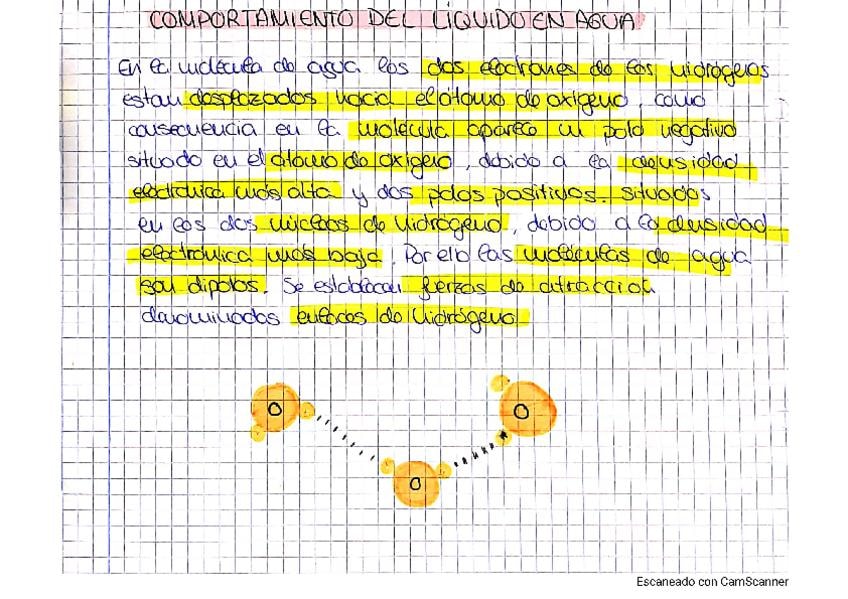 COMPORTAMIENTO DEL LÍQUIDO EN AGUA
En la molécula de agua los dos electrones de los hidrógenos
estan desplazados hacia el átomo de oxígeno, como
consecuencia en la molécula aparece un polo negativo
situado en el átomo de oxígeno, debido a la densidad
electrónica más alta y dos polos positivos. situados
en los dos núcleos de hidrógeno, debido a la densidad
electrónica más baja. Por ello las moléculas de agua
son dipolos. Se establecen fuerzas de atracción
denominadas enlaces de hidrógeno
O
O
O
Escaneado con CamScanner